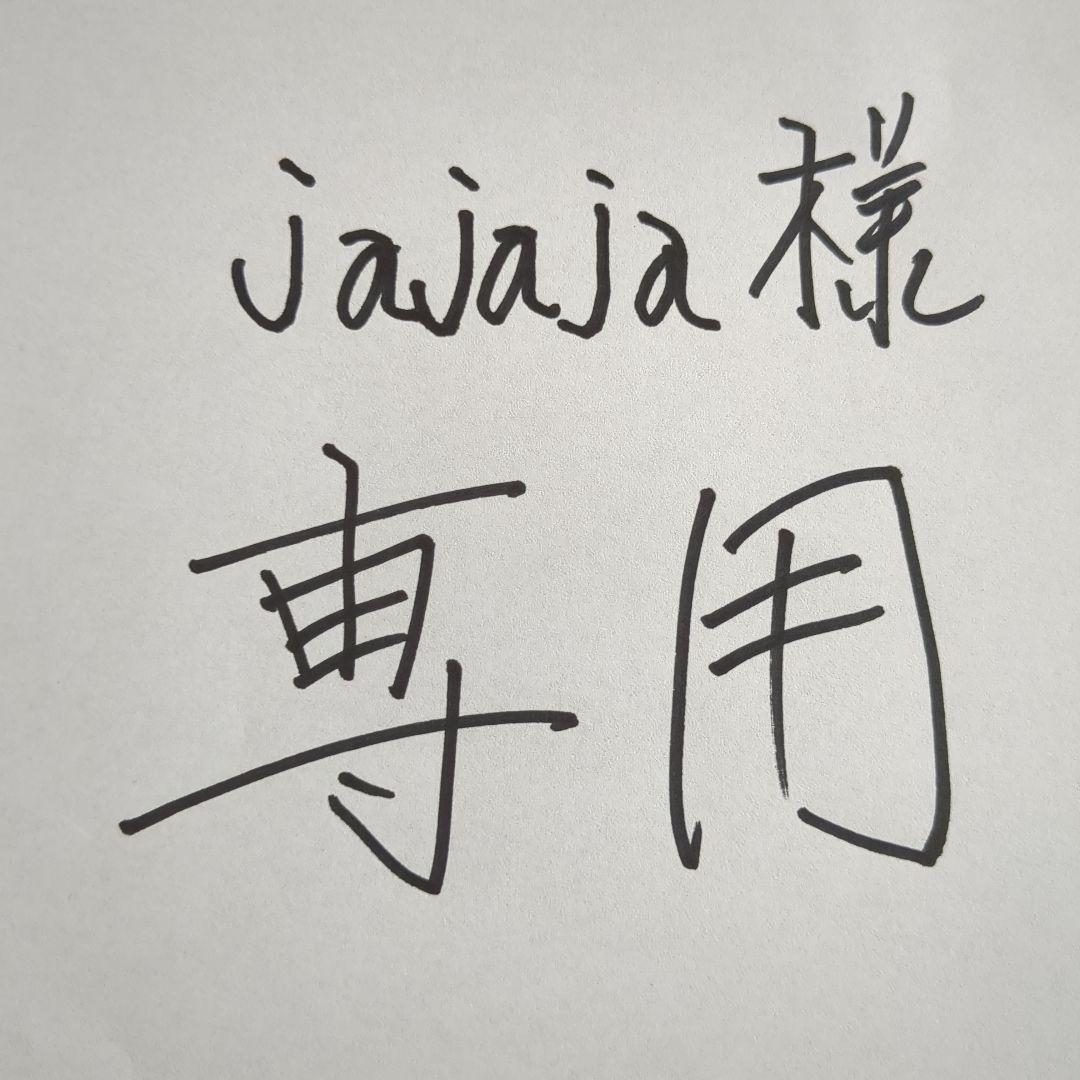 jajaja様
専用